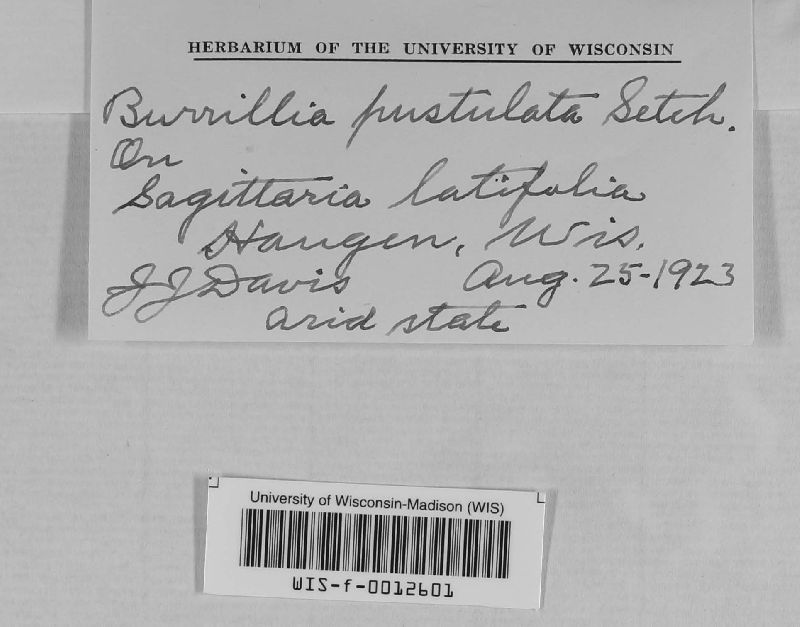 HERBARIUM OF THE UNIVERSITY OF WISCONSIN
Burrillia pustulata Setch.
On
Sagittaria latifolia
Haugen, Wis.
JJ Davis Aug. 25-1923
arid state
University of Wisconsin-Madison (WIS)
WIS-f-0012601